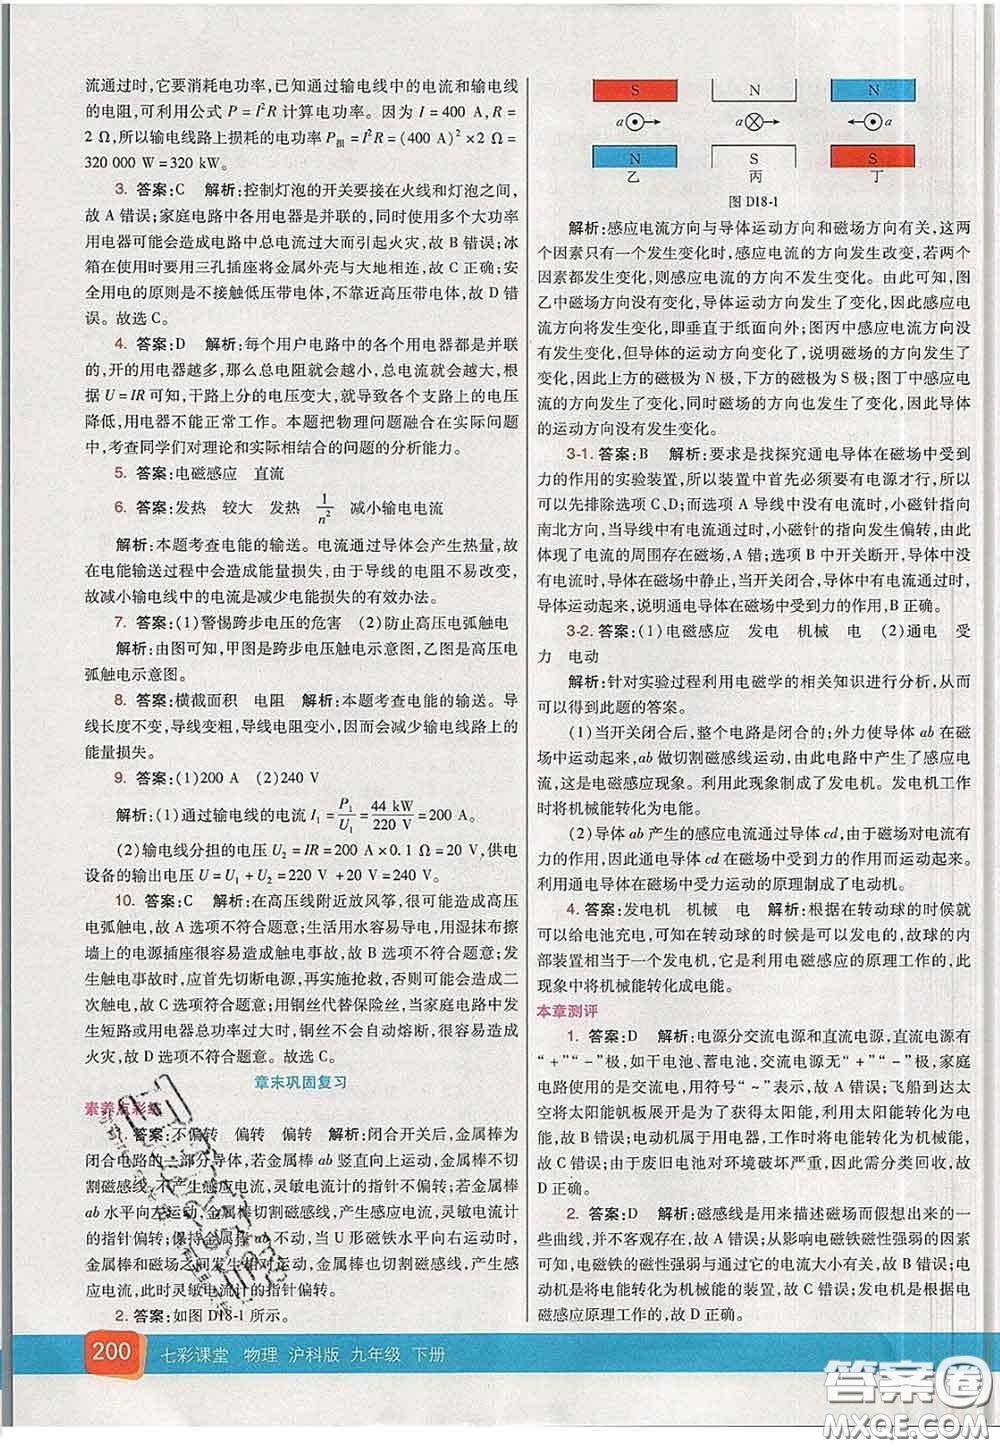 流通过时,它要消耗电功率,已知通过输电线中的电流和输电线
的电阻,可利用公式 P = I²R 计算电功率。因为 I = 400 A,R =
2 Ω,所以输电线路上损耗的电功率 P损 = I²R = (400 A)² × 2 Ω =
320 000 W = 320 kW。
3. 答案:C 解析:控制灯泡的开关要接在火线和灯泡之间,
故 A 错误;家庭电路中各用电器是并联的,同时使用多个大功率
用电器可能会造成电路中总电流过大引起火灾,故 B 错误;冰
箱在使用时要用三孔插座将金属外壳与大地相连,故 C 正确;安
全用电的原则是不接触低压带电体,不靠近高压带电体,故 D 错
误。故选 C。
4. 答案:D 解析:每个用户电路中的各个用电器都是并联
的,开的用电器越多,那么总电阻就会越小,总电流就会越大,根
据 U = IR 可知,干路上分的电压变大,就导致各个支路上的电压
降低,用电器不能正常工作。本题把物理问题融合在实际问题
中,考查同学们对理论和实际相结合的问题的分析能力。
5. 答案:电磁感应 直流
6. 答案:发热 较大 发热 1/n² 减小输电电流
解析:本题考查电能的输送。电流通过导体会产生热量,故
在电能输送过程中会造成能量损失,由于导线的电阻不易改变,
故减小输电线中的电流是减少电能损失的有效办法。
7. 答案:(1)警惕跨步电压的危害 (2)防止高压电弧触电
解析:由图可知,甲图是跨步电压触电示意图,乙图是高压电
弧触电示意图。
8. 答案:横截面积 电阻 解析:本题考查电能的输送。导
线长度不变,导线变粗,导线电阻变小,因而会减少输电线路上的
能量损失。
9. 答案:(1)200 A (2)240 V
解析:(1)通过输电线的电流 I₁ = P₁/U₁ = 44 kW/220 V = 200 A。
(2)输电线分担的电压 U₂ = IR = 200 A × 0.1 Ω = 20 V,供电
设备的输出电压 U = U₁ + U₂ = 220 V + 20 V = 240 V。
10. 答案:C 解析:在高压线附近放风筝,很容易造成高压
电弧触电,故 A 选项不符合题意;生活用水容易导电,用湿抹布擦
墙上的电源插座很容易造成触电事故,故 B 选项不符合题意;发
生触电事故时,应首先切断电源,再实施抢救,否则会造成二
次触电,故 C 选项符合题意;用铜丝代替保险丝,当家庭电路中发
生短路或用电器总功率过大时,铜丝不会自动熔断,很容易造成
火灾,故 D 选项不符合题意。故选 C。
章末巩固复习
素养点彩练
1. 答案:不偏转 偏转 偏转 解析:闭合开关后,金属棒为
闭合电路的一部分导体,若金属棒 ab 竖直向上运动,金属棒不切
割磁感线,不产生感应电流,灵敏电流计的指针不偏转;若金属棒
ab 水平向左运动,金属棒切割磁感线,产生感应电流,灵敏电流计
的指针偏转;保持金属棒 ab 不动,当 U 形磁铁水平向右运动时,金属
棒和磁场之间发生相对运动,金属棒也切割磁感线,产生感应
电流,此时灵敏电流计的指针偏转。
2. 答案:如图 D18-1 所示。
S N N
a a a
N S S
乙 丙 丁
图 D18-1
解析:感应电流方向与导体运动方向和磁场方向有关,这两
个因素只有一个发生变化时,感应电流的方向发生改变,若两个
因素都发生变化,则感应电流的方向不发生变化。由此可知,图
乙中磁场方向没有变化,导体运动方向发生了变化,因此感应电
流方向将发生变化,即垂直于纸面向外;图丙中感应电流方向没
有发生变化,但导体的运动方向变化了,说明磁场的方向发生了
变化,因此上方的磁极为 N 极,下方的磁极为 S 极;图丁中感应电
流的方向发生了变化,同时磁场的方向也发生了变化,因此导体
的运动方向没有发生变化。
3-1. 答案:B 解析:要求是找探究通电导体在磁场中受到
力的作用的实验装置,所以装置中首先必须要有电源才行,所以
可以先排除选项 C、D;而选项 A 导线中没有电流时,小磁针指向
南北方向,当导线中有电流通过时,小磁针的指向发生偏转,由此
体现了电流的周围存在磁场,A 错;选项 B 中开关断开,导体中没
有电流,导体在磁场中静止,当开关闭合,导体中有电流通过时,
导体运动起来,说明通电导体在磁场中受到力的作用,B 正确。
3-2. 答案:(1)电磁感应 发电 机械 电 (2)通电 受
力 电动
解析:针对实验过程利用电磁学的相关知识进行分析,从而
可以得到此题的答案。
(1)当开关闭合后,整个电路是闭合的;外力使导体 ab 在磁
场中运动起来,ab 做切割磁感线运动,由此电路中产生了感应电
流,这是电磁感应现象。利用此现象制成了发电机。发电机工作
时将机械能转化为电能。
(2)导体 ab 产生的感应电流通过导体 cd,由于磁场对电流有
力的作用,因此通电导体 cd 在磁场中受到力的作用而运动起来。
利用通电导体在磁场中受力运动的原理制成了电动机。
4. 答案:发电机 机械 电 解析:根据在转动球的时候就
可以给电池充电,可知在转动球的时候是可以发电的,故球的内
部装置相当于一个发电机,它是利用电磁感应的原理工作的,此
现象中将机械能转化成电能。
本章测评
1. 答案:D 解析:电源分交流电源和直流电源,直流电源有
“＋”“－”极,如干电池、蓄电池,交流电源无“＋”“－”极,家庭
电路使用的是交流电,用符号“~”表示,故 A 错误;飞船到达太
空时将太阳能帆板展开是为了获得太阳能,利用太阳能转化为电
能,故 B 错误;电动机属于用电器,工作时将电能转化为机械能,
故 C 错误;由于废旧电池对环境破坏严重,因此需分类回收,故
D 正确。
2. 答案:D 解析:磁感线是用来描述磁场而假想出来的一
些曲线,并不客观存在,故 A 错误;从影响电磁铁磁性强弱的因素
可知,电磁铁的磁性强弱与通过它的电流大小有关,故 B 错误;电
动机是将电能转化为机械能的装置,故 C 错误;发电机是根据电
磁感应原理工作的,故 D 正确。
200 七彩课堂 物理 沪科版 九年级 下册
答案圈
MXQE.COM